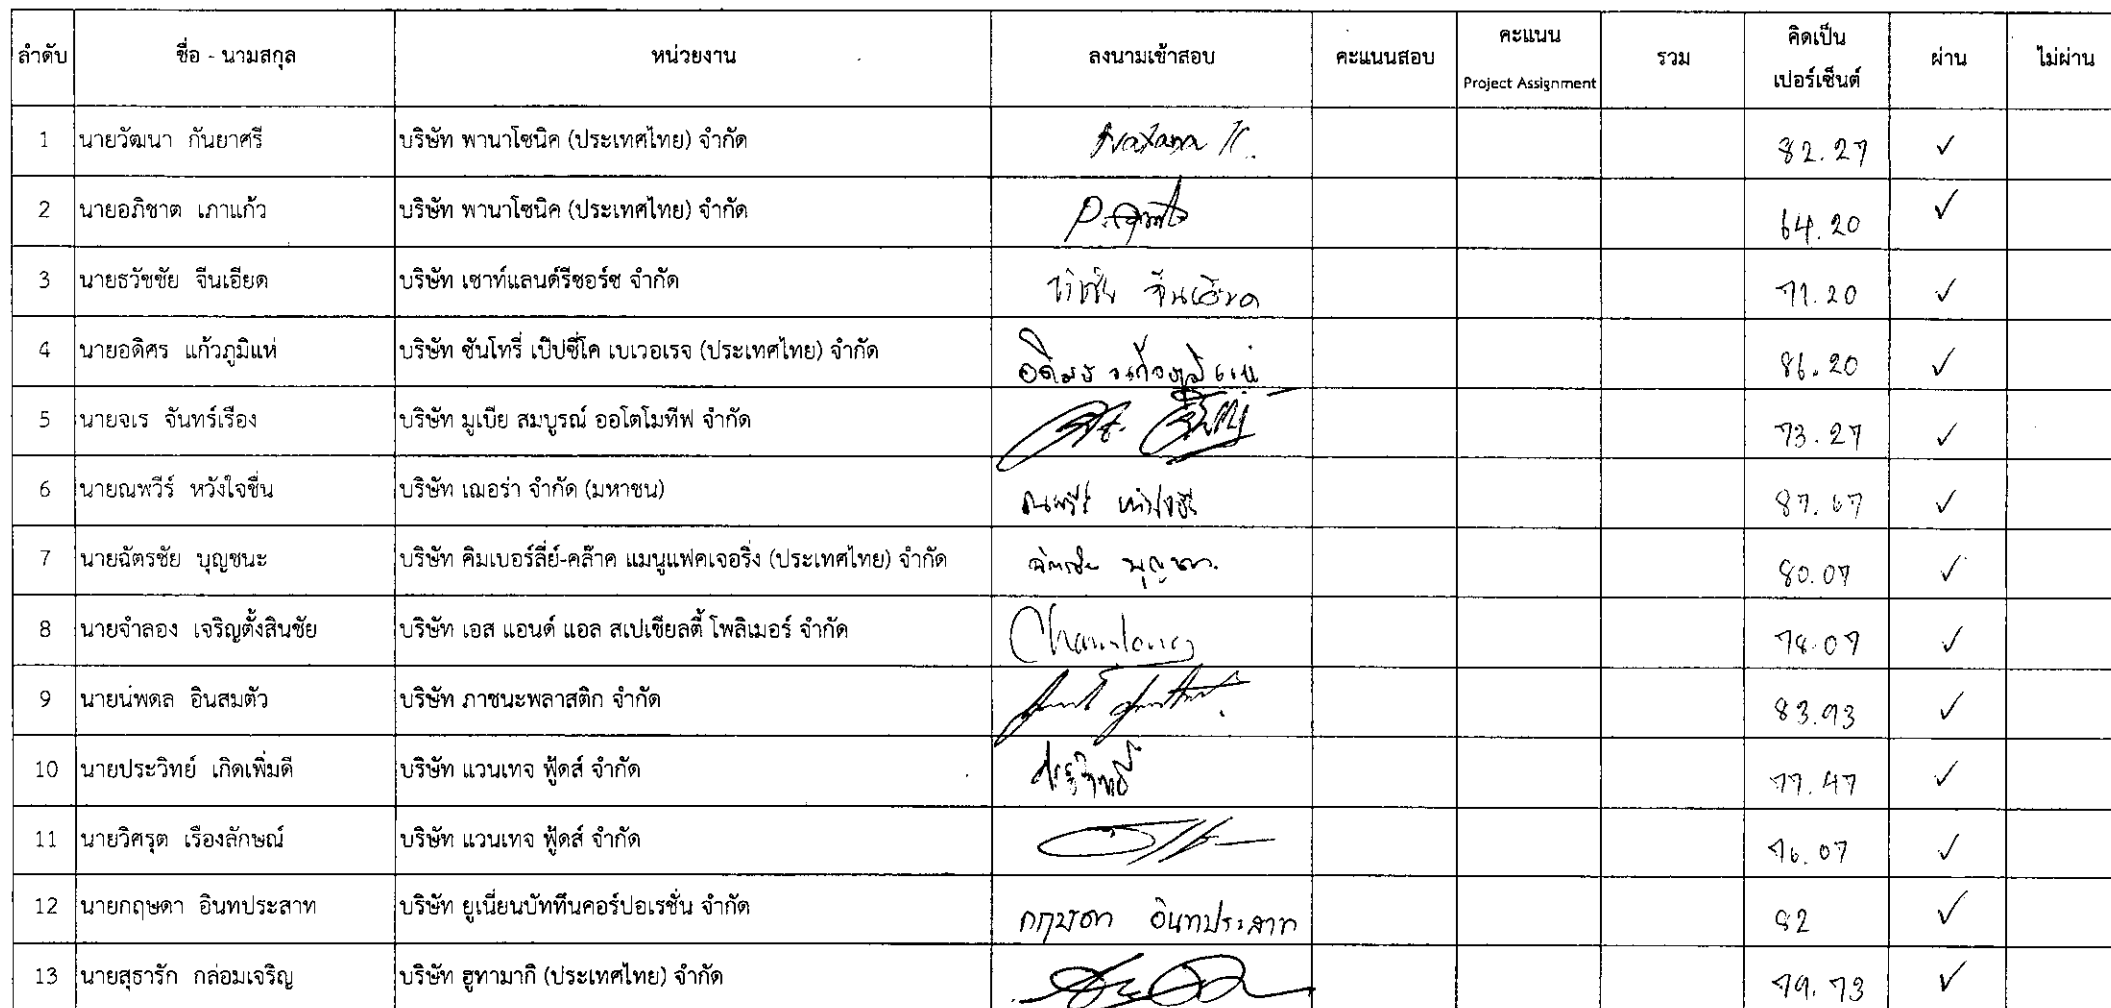 ลำดับ ชื่อ - นามสกุล หน่วยงาน ลงนามเข้าสอบ คะแนนสอบ คะแนน Project Assignment รวม คิดเป็น เปอร์เซ็นต์ ผ่าน ไม่ผ่าน
1 นายวัฒนา กันยาศรี บริษัท พานาโซนิค (ประเทศไทย) จำกัด 82.27 ✓
2 นายอภิชาต เภาแก้ว บริษัท พานาโซนิค (ประเทศไทย) จำกัด 64.20 ✓
3 นายธวัชชัย จีนเอียด บริษัท เซาท์แลนด์รีซอร์ซ จำกัด 71.20 ✓
4 นายอดิศร แก้วภูมิแห่ บริษัท ซันโทรี่ เป๊ปซี่โค เบเวอเรจ (ประเทศไทย) จำกัด อดิศร แก้วภูมิแห่ 86.20 ✓
5 นายจเร จันทร์เรือง บริษัท มูเบีย สมบูรณ์ ออโตโมทีฟ จำกัด 73.27 ✓
6 นายณพวีร์ หวังใจชื่น บริษัท เฌอร่า จำกัด (มหาชน) ณพวีร์ หวังใจชื่น 87.67 ✓
7 นายฉัตรชัย บุญชนะ บริษัท คิมเบอร์ลี่ย์-คล๊าค แมนูแฟคเจอริ่ง (ประเทศไทย) จำกัด ฉัตรชัย บุญชนะ 80.07 ✓
8 นายจำลอง เจริญตั้งสินชัย บริษัท เอส แอนด์ แอล สเปเชียลตี้ โพลิเมอร์ จำกัด Chamlong 78.07 ✓
9 นายนพดล อินสมตัว บริษัท ภาชนะพลาสติก จำกัด 83.93 ✓
10 นายประวิทย์ เกิดเพิ่มดี บริษัท แวนเทจ ฟู้ดส์ จำกัด 77.47 ✓
11 นายวิศรุต เรืองลักษณ์ บริษัท แวนเทจ ฟู้ดส์ จำกัด 76.07 ✓
12 นายกฤษดา อินทประสาท บริษัท ยูเนี่ยนบัททึนคอร์ปอเรชั่น จำกัด กฤษดา อินทประสาท 82 ✓
13 นายสุธารัก กล่อมเจริญ บริษัท ฮูทามากิ (ประเทศไทย) จำกัด 79.73 ✓